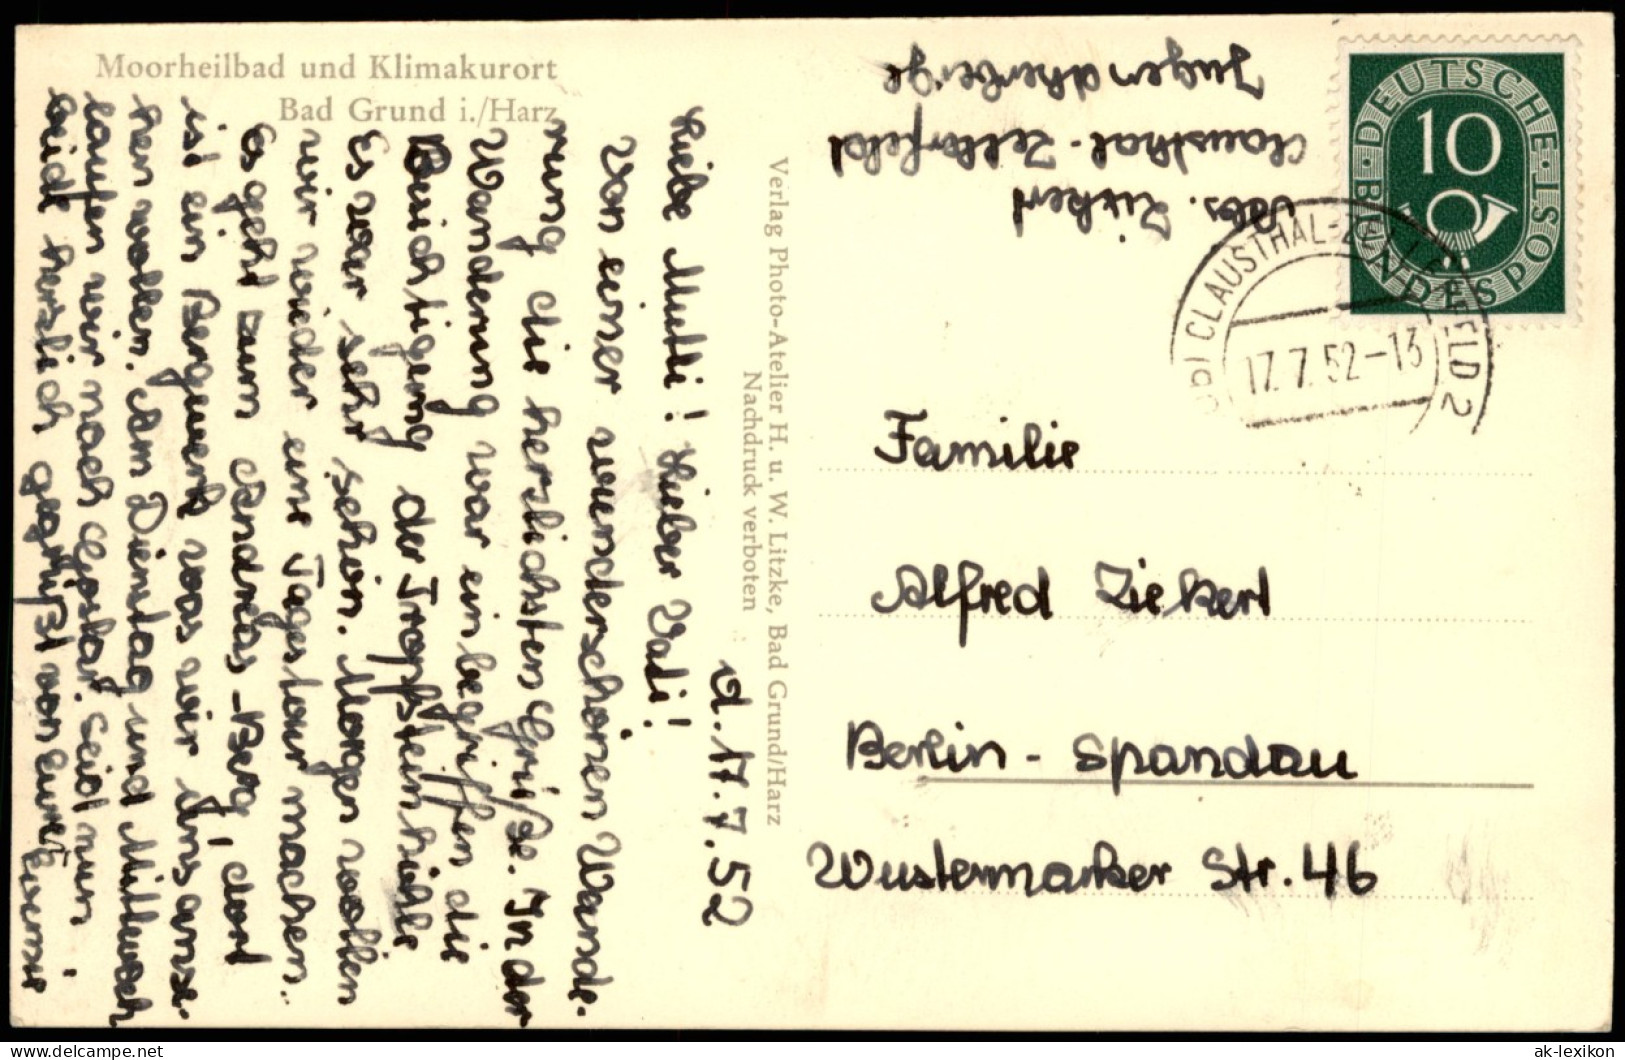 Moorheilbad und Klimakurort
Bad Grund i./Harz
d. 17. 7. 52
Liebe Mutti! Lieber Vati!
Von einer wunderschönen Wande-
rung die herzlichsten Grüße. In der
Wanderung war einbegriffen die
Besichtigung der Tropfsteinhöhle
Es war sehr schön. Morgen wollen
wir wieder eine Tagestour machen.
Es geht zum Andreas-Berg, dort
ist ein Bergwerk was wir uns anse-
hen wollen. Am Dienstag und Mittwoch
laufen wir nach Goslar. Seid nun
beide herzlich gegrüßt von eurer
Verlag Photo-Atelier H. u. W. Litzke, Bad Grund/Harz
Nachdruck verboten
Abs. Ziekert
Clausthal-Zellerfeld
Jugendherberge
DEUTSCHE BUNDESPOST
10
CLAUSTHAL-ZELLERFELD 2
17.7.52-13
Familie
Alfred Ziekert
Berlin - Spandau
Wustermarker Str. 46
ak-lexikon